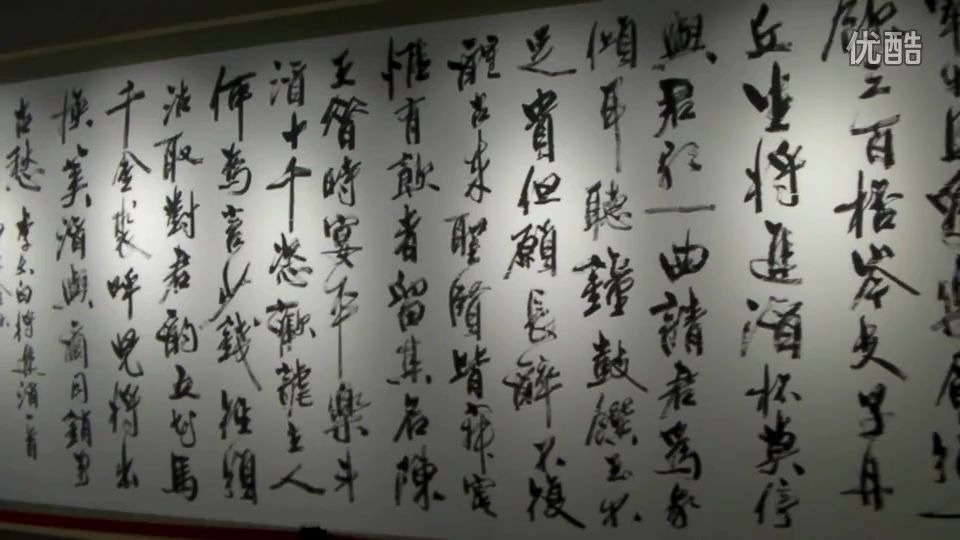 宰牛且為樂會須一
飲三百杯岑夫子丹
丘生將進酒杯莫停
與君歌一曲請君為我
傾耳聽鐘鼓饌玉不
足貴但願長醉不復
醒古來聖賢皆寂寞
惟有飲者留其名陳
王昔時宴平樂斗
酒十千恣歡謔主人
何為言少錢徑須
沽取對君酌五花馬
千金裘呼兒將出
換美酒與爾同銷萬
古愁 李太白將進酒一首
优酷